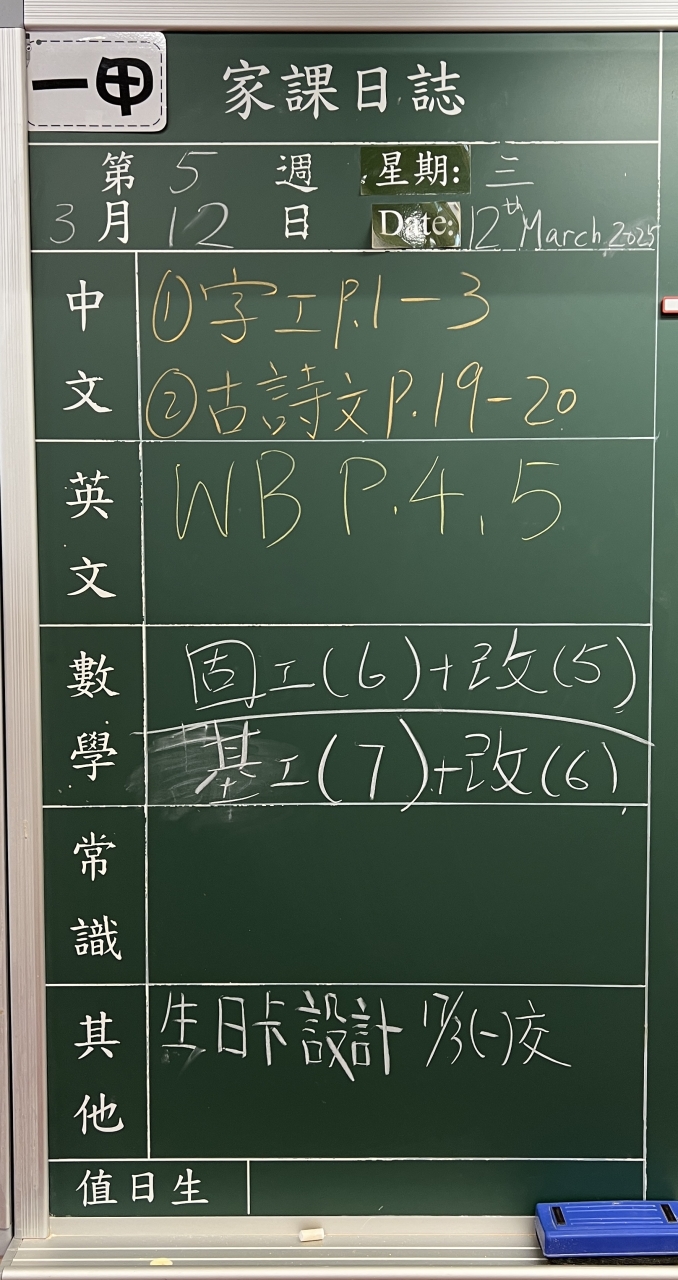 一甲 家課日誌
第 5 週 星期: 三
3 月 12 日 Date: 12th March 2025
中文 ①字工 P.1-3
②古詩文 P.19-20
英文 WB P.4,5
數學 固工(6)+改(5)
基工(7)+改(6)
常識
其他 生日卡設計 17/3(一)交
值日生